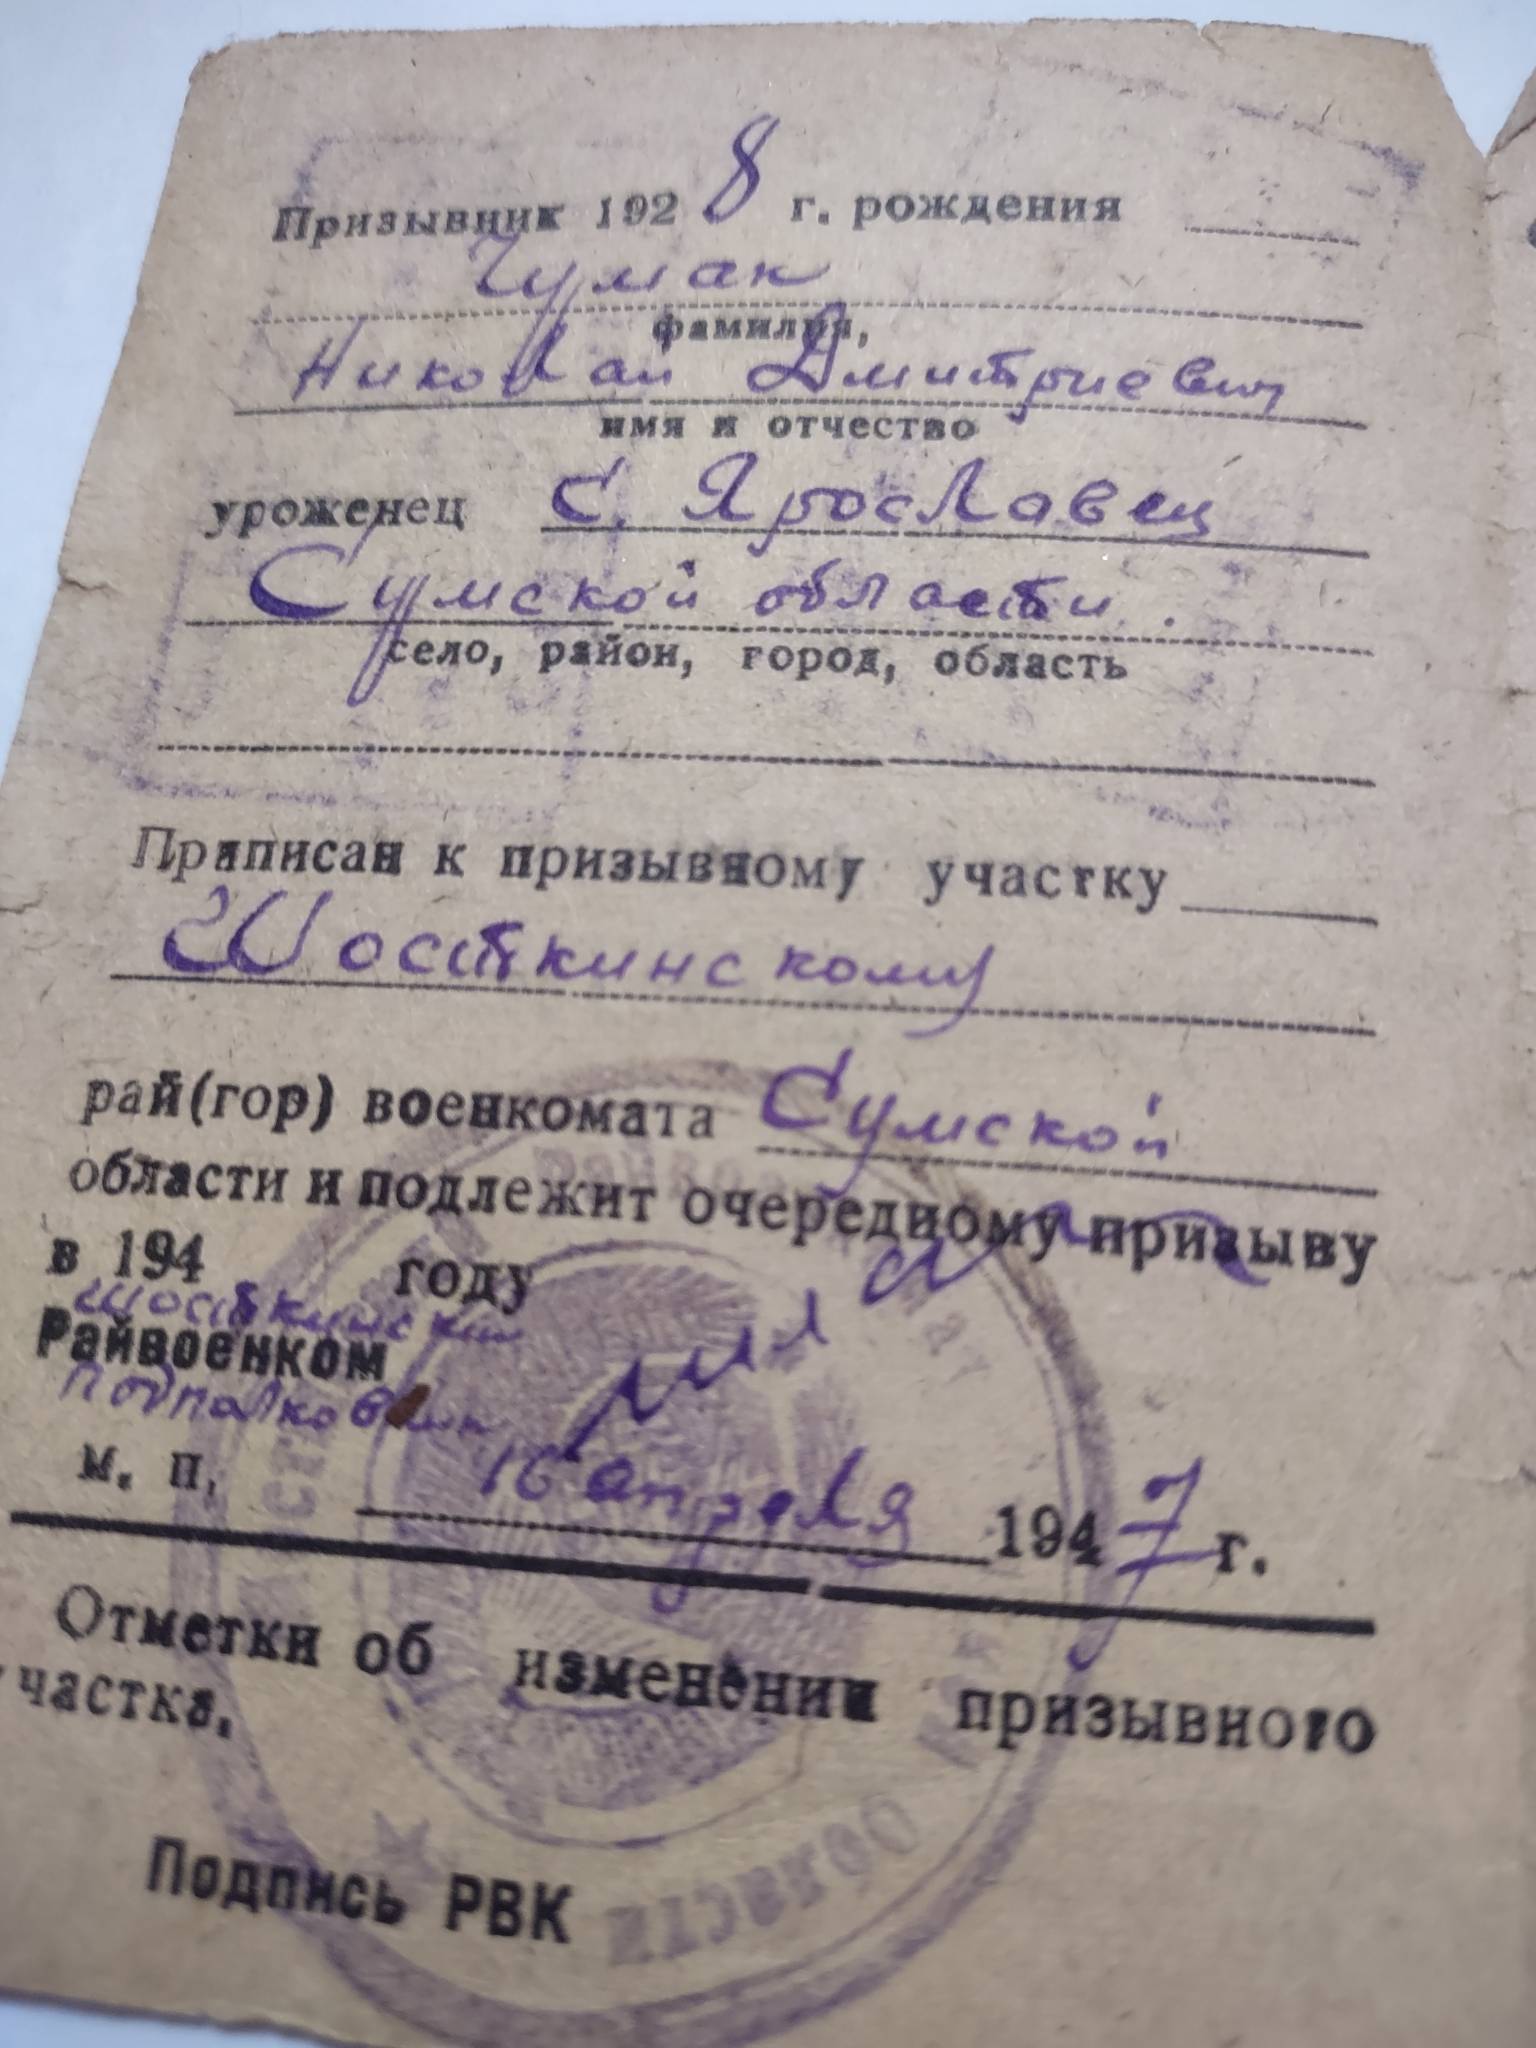 Призывник 1928 г. рождения
Чумак
фамилия,
Николай Дмитриевич
имя и отчество
уроженец С. Ярославец
Сумской области.
село, район, город, область
Приписан к призывному участку
Шосткинскому
рай(гор) военкомата Сумской
области и подлежит очередному призыву
в 194 году
Шосткинский
Райвоенком
подполковник
м. п. 16 апреля 1947 г.
Отметки об изменении призывного
участка.
Подпись РВК
Области